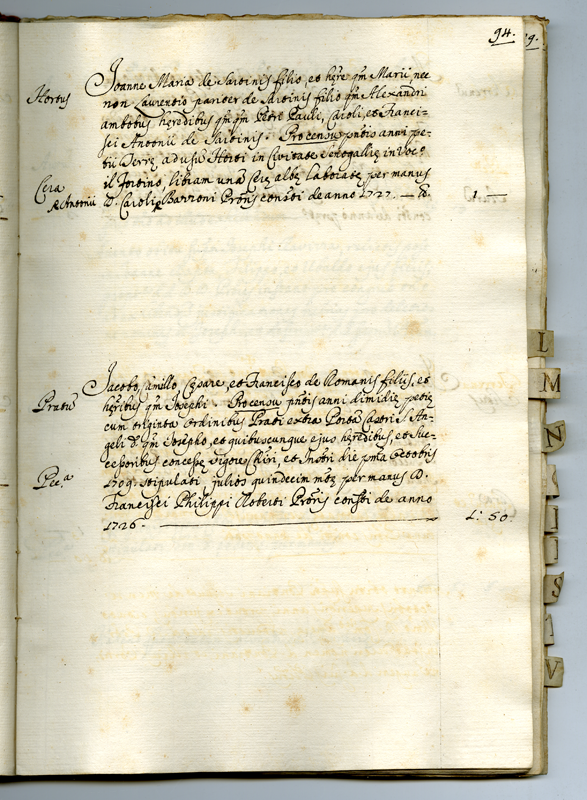 94.
9.
Hortus
Joanne Maria de Sardinis filio, et hęre qm Marii, nec
non Laurentio pariter de Sardinis filio qm Alexandri
ambobus hęredibus qm qm Petri Pauli, Caroli, et Franci-
sci Antonii de Sardinis. Pro censu pntis anni pe-
tii Terrę ad usū Horti in Civitate Senogallię in Voc.
il Portino, libram unā Cerę albę laboratę per manus
Cera
D. Caroli Barzoni Pronis constbi de anno 1727. — ℔. 1 —
p Antonii
Jacobo, Camillo, Cęsare, et Francisco de Romanis filiis, et
hęribus qm Josephi. Pro censu pntis anni dimidię petię
Pratū
cum triginta ordinibus Prati extra Portā Castri S. An-
geli D. qm Josepho, et quibuscunque ejus hęredibus, et Suc-
cessoribus concessę vigore Chiri, et Instri die pma Octobris
Pec.a
1709. stipulati julios quindecim mōę per manus D.
Francisci Philippi Roberti Pronis constbi de anno
1726. — 1: 50
L
M
N
S
V